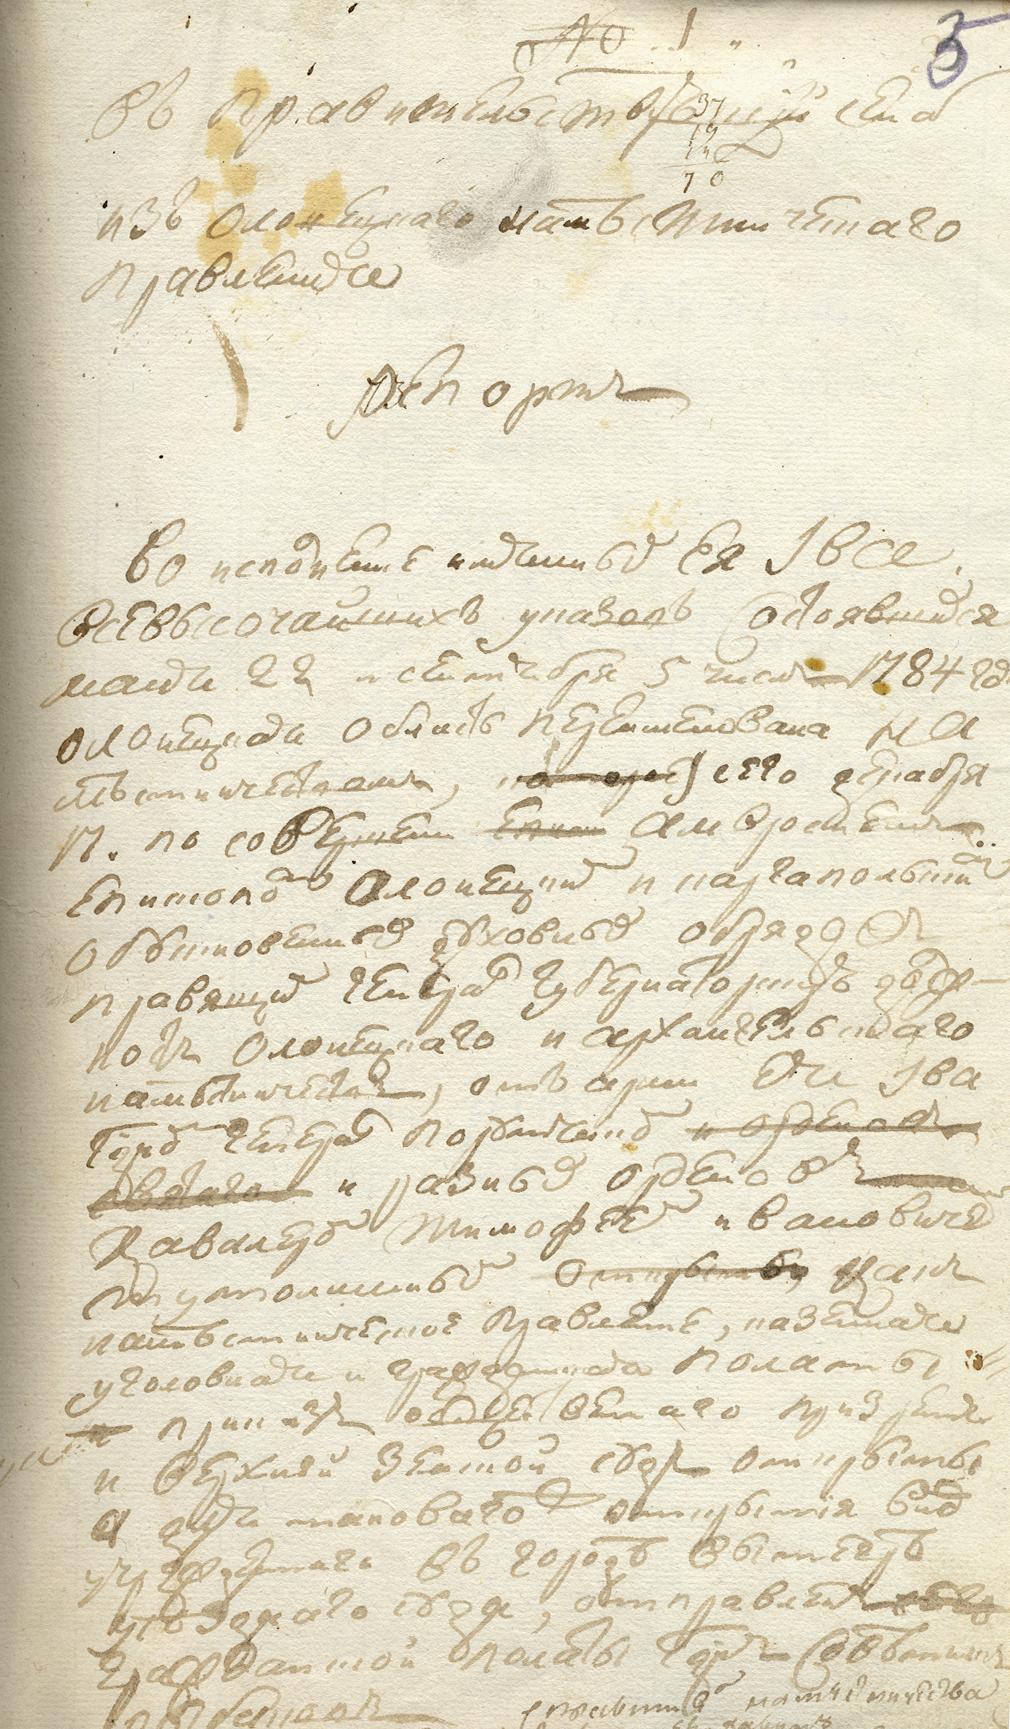 № 1
5
Въ Правительствующій Сенатъ
37
70
изъ олонецкаго наместническаго
правления
Репортъ
Во исполнение имянныхъ Ея Ива
всевысочайшихъ указовъ состоявшихся
маия 22 и сентября 5 числъ 1784 году
олонецкая область переименована на
местничествомъ, сего декабря
17. по совершении Амвросиемъ
епископомъ олонецкимъ и каргапольскимъ
обыкновенныхъ духовныхъ обрядовъ
правящимъ генералъ губернаторскую долж-
ность олонецкаго и архангельскаго
наместничествъ, отъ армии Ея Ива
генералъ порутчикомъ
и разныхъ орденовъ
кавалеромъ тимофеемъ ивановичемъ
тутолминымъ какъ
наместническое правление, казенная
уголовная и гражданская палаты
приказъ общественнаго призрения
и верхний земской судъ открыты
а для таковаго открытия вновь
учрежденнаго въ городе вытегре
уезднаго суда, отправленъ
гражданской палаты советникъ
наместничества